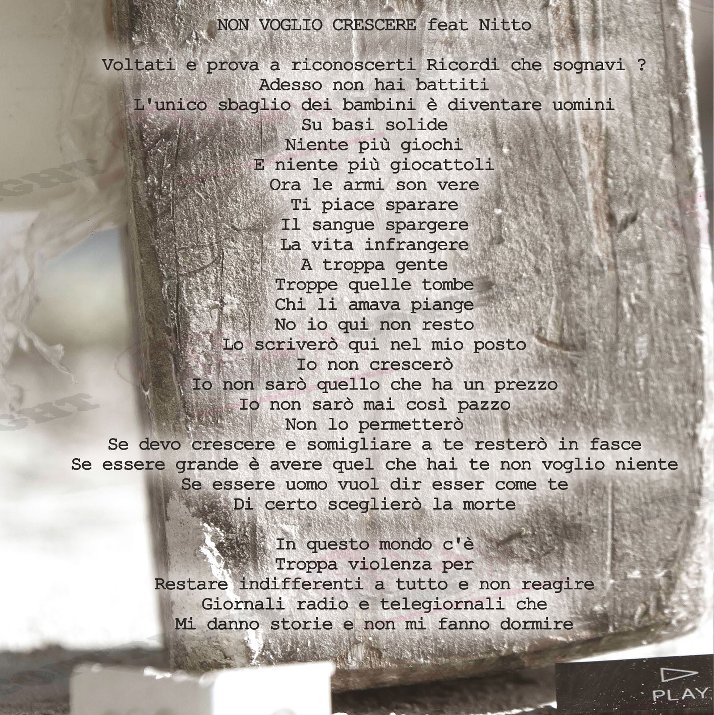 NON VOGLIO CRESCERE feat Nitto
Voltati e prova a riconoscerti Ricordi che sognavi ?
Adesso non hai battiti
L'unico sbaglio dei bambini è diventare uomini
Su basi solide
Niente più giochi
E niente più giocattoli
Ora le armi son vere
Ti piace sparare
Il sangue spargere
La vita infrangere
A troppa gente
Troppe quelle tombe
Chi li amava piange
No io qui non resto
Lo scriverò qui nel mio posto
Io non crescerò
Io non sarò quello che ha un prezzo
Io non sarò mai così pazzo
Non lo permetterò
Se devo crescere e somigliare a te resterò in fasce
Se essere grande è avere quel che hai te non voglio niente
Se essere uomo vuol dir esser come te
Di certo sceglierò la morte
In questo mondo c'è
Troppa violenza per
Restare indifferenti a tutto e non reagire
Giornali radio e telegiornali che
Mi danno storie e non mi fanno dormire
PLAY